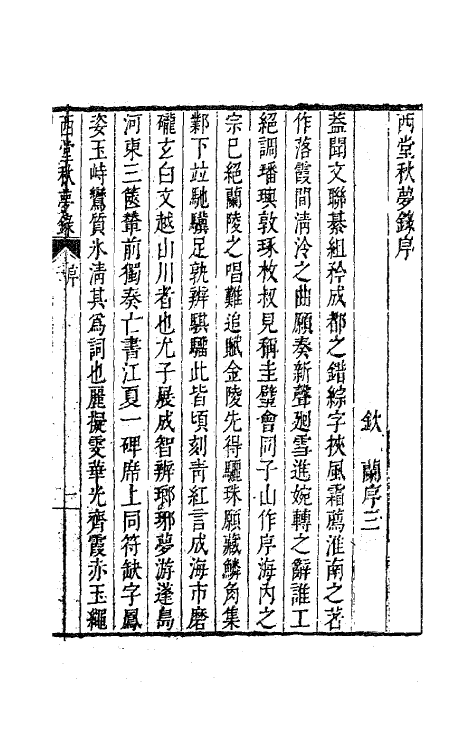 西堂秋夢錄序
欽　蘭序三
蓋聞文聯綦組矜成都之錯綜字挾風霜薦淮南之著
作落霞間淸泠之曲願奏新聲廻雪進婉轉之辭誰工
絕調璠璵敦琢枚叔見稱圭璧會同子山作序海內之
宗已絕蘭陵之唱難追賦金陵先得驪珠願藏鱗角集
鄴下竝馳驥足孰辨騏驑此皆頃刻靑紅言成海市磨
礲玄白文越山川者也尤子展成智辨瑯琊夢游蓬島
河東三篋輦前獨奏亡書江夏一碑席上同符缺字鳳
姿玉峙鸞質氷淸其爲詞也麗擬雯華光齊霞赤玉繩
西堂秋夢錄　序　一